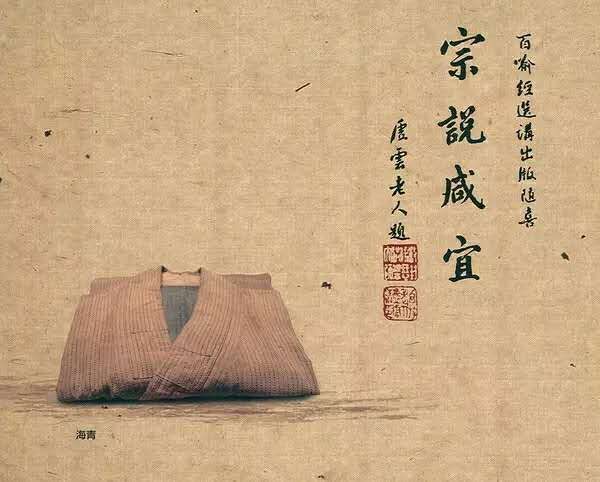 百喻经选講出版随喜
宗說咸宜
虛雲老人題
海青